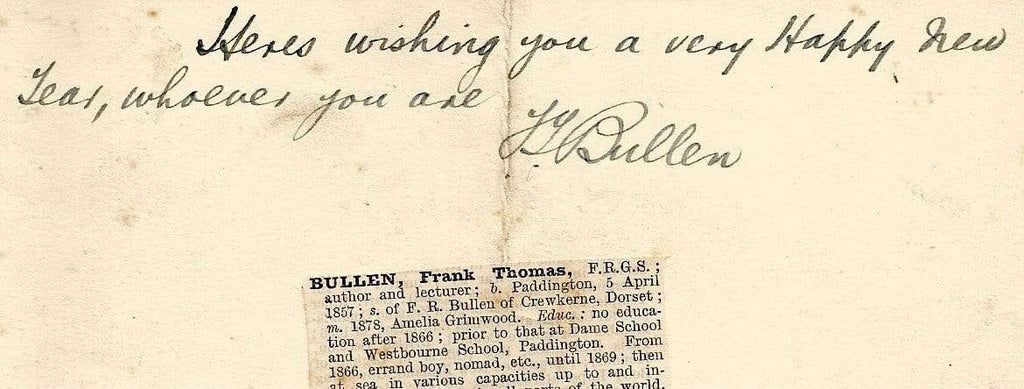 Heres wishing you a very Happy New
Year, whoever you are
FTBullen
BULLEN, Frank Thomas, F.R.G.S.;
author and lecturer; b. Paddington, 5 April
1857; s. of F. R. Bullen of Crewkerne, Dorset;
m. 1878, Amelia Grimwood. Educ.: no educa-
tion after 1866; prior to that at Dame School
and Westbourne School, Paddington. From
1866, errand boy, nomad, etc., until 1869; then
at sea in various capacities up to and in-
all parts of the world.